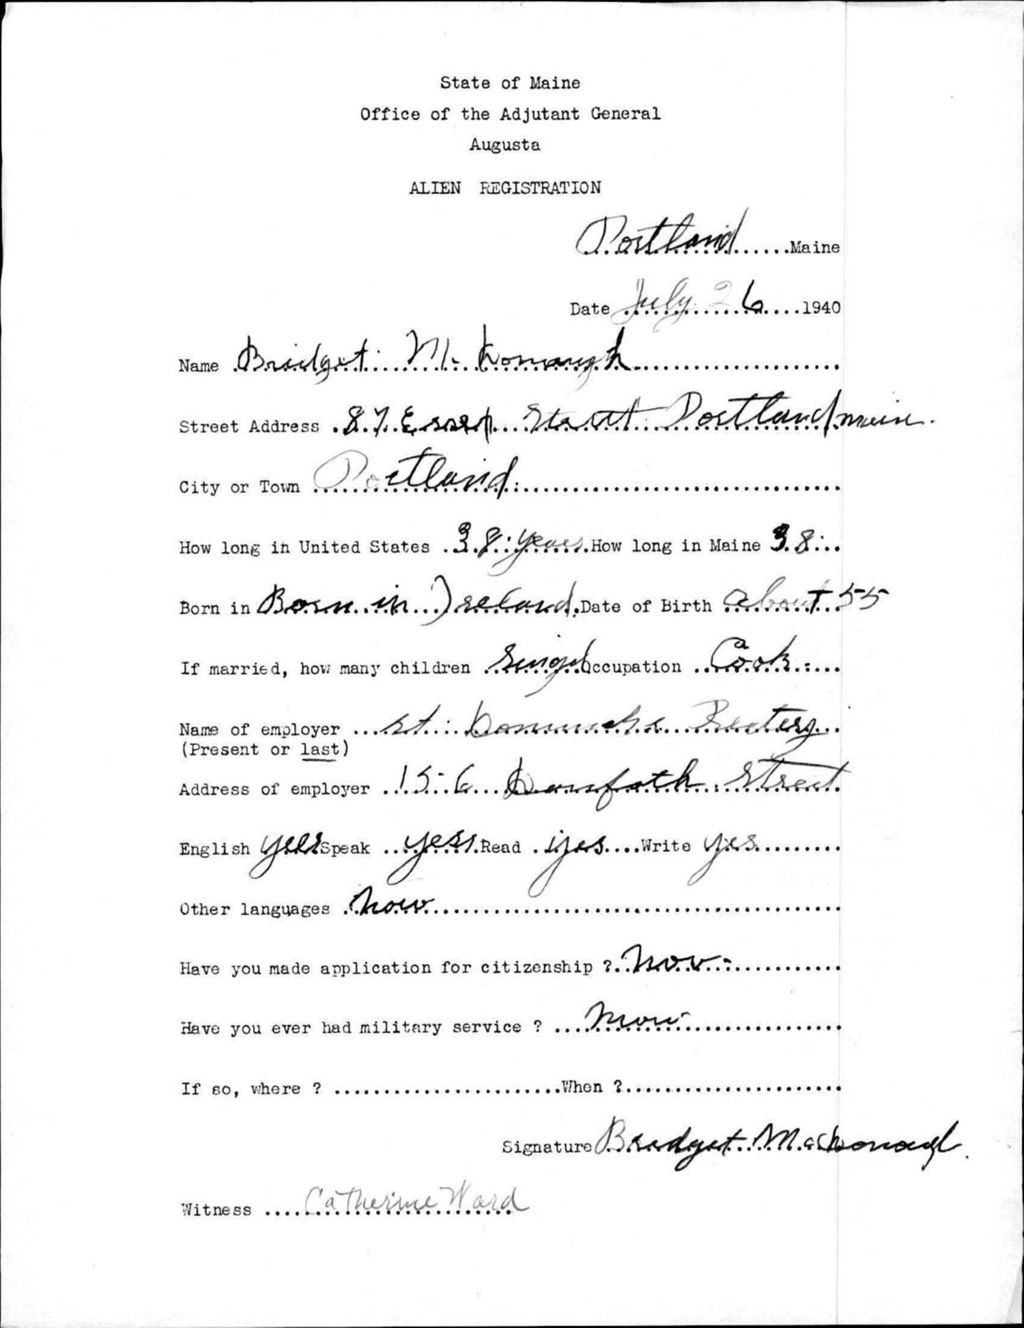 State of Maine
Office of the Adjutant General
Augusta
ALIEN REGISTRATION
Portland ......Maine
Date July 26 ....1940
Name Bridget Mc Donaugh
Street Address 87 Street Portland main.
City or Town Portland
How long in United States 38 years How long in Maine 38
Born in Born in Ireland Date of Birth about 55
If married, how many children Singel Occupation a Cook
Name of employer St.
(Present or last)
Address of employer 156 Street
English yees Speak yess Read yes Write yes
Other languages now
Have you made application for citizenship ? now
Have you ever had military service ? now
If so, where ? ........................When ?......................
Signature Bridget Macdonaugh
Witness Catherine Ward